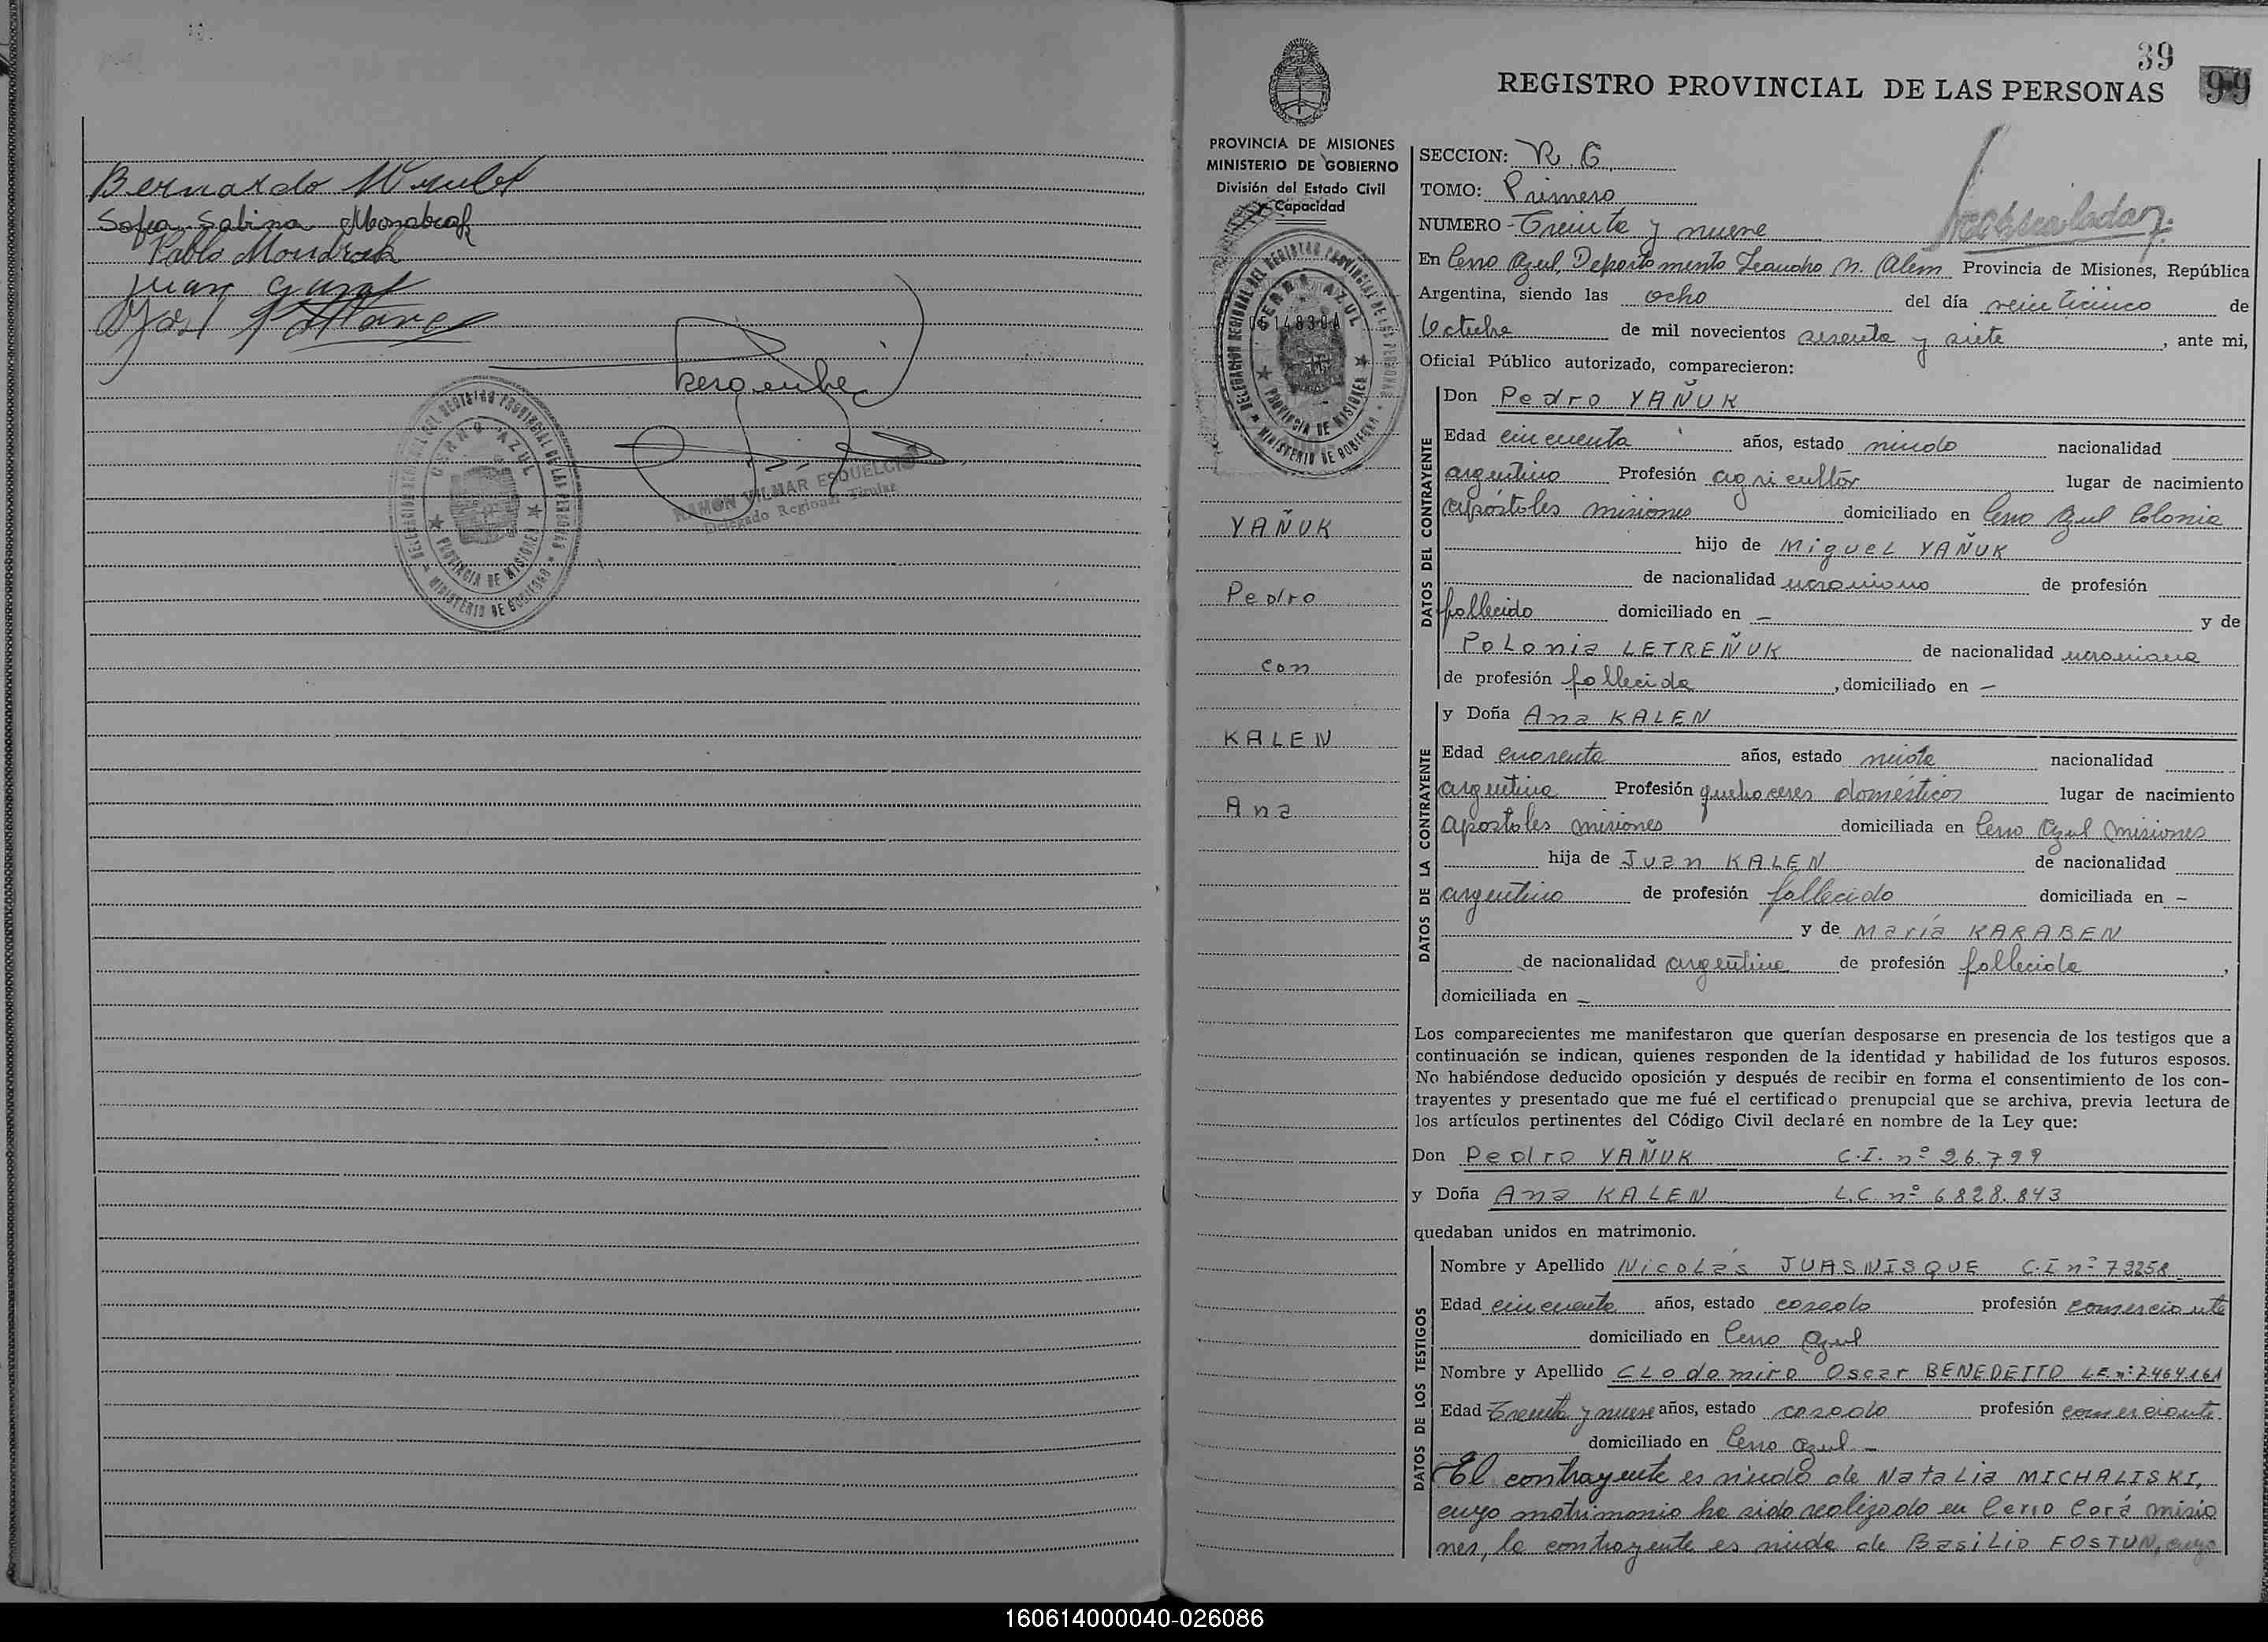 Bernardo
Sofia Sabina
Pablo Mondrak
Juan
José
DELEGACION REGIONAL DEL REGISTRO PROVINCIAL DE LAS PERSONAS
CERRO AZUL
PROVINCIA DE MISIONES
MINISTERIO DE GOBIERNO
RAMON VILMAR ESQUELCI
Delegado Regional Titular
39
99
REGISTRO PROVINCIAL DE LAS PERSONAS
PROVINCIA DE MISIONES
MINISTERIO DE GOBIERNO
División del Estado Civil
y Capacidad
DELEGACION REGIONAL DEL REGISTRO PROVINCIAL DE LAS PERSONAS
CERRO AZUL
PROVINCIA DE MISIONES
MINISTERIO DE GOBIERNO
YAÑUK
Pedro
con
KALEN
Ana
SECCION: R. C.
TOMO: Primero
NUMERO - Treinta y nueve
En Cerro Azul, Departamento Leandro N. Alem Provincia de Misiones, República
Argentina, siendo las ocho del día veinticinco de
Octubre de mil novecientos sesenta y siete, ante mi,
Oficial Público autorizado, comparecieron:
DATOS DEL CONTRAYENTE
Don Pedro YAÑUK
Edad cincuenta años, estado viudo nacionalidad
argentino Profesión agricultor lugar de nacimiento
apóstoles misiones domiciliado en Cerro Azul Colonia
hijo de Miguel YAÑUK
de nacionalidad ucraniano de profesión
fallecido domiciliado en – y de
Polonia LETREÑUK de nacionalidad ucraniana
de profesión fallecida, domiciliado en –
DATOS DE LA CONTRAYENTE
y Doña Ana KALEN
Edad cuarenta años, estado viuda nacionalidad
argentina Profesión quehaceres domésticos lugar de nacimiento
apostoles misiones domiciliada en Cerro Azul misiones
hija de Juan KALEN de nacionalidad
argentino de profesión fallecido domiciliada en –
y de María KARABEN
de nacionalidad argentina de profesión fallecida,
domiciliada en –
Los comparecientes me manifestaron que querían desposarse en presencia de los testigos que a
continuación se indican, quienes responden de la identidad y habilidad de los futuros esposos.
No habiéndose deducido oposición y después de recibir en forma el consentimiento de los con-
trayentes y presentado que me fué el certificado prenupcial que se archiva, previa lectura de
los artículos pertinentes del Código Civil declaré en nombre de la Ley que:
Don Pedro YAÑUK C.I. nº 26.799
y Doña Ana KALEN L.C. nº 6828.843
quedaban unidos en matrimonio.
DATOS DE LOS TESTIGOS
Nombre y Apellido Nicolás JUASNISQUE C.I nº 79258
Edad cincuenta años, estado casado profesión comerciante
domiciliado en Cerro Azul
Nombre y Apellido CLodomiro Oscar BENEDETTO L.E. nº 7464161
Edad Treinta y nueve años, estado casado profesión comerciante
domiciliado en Cerro Azul –
El contrayente es viudo de NataLia MICHALISKI,
cuyo matrimonio ha sido realizado en Cerro Corá misio
nes, la contrayente es viuda de BasiLio FOSTUN, cuyo
160614000040-026086